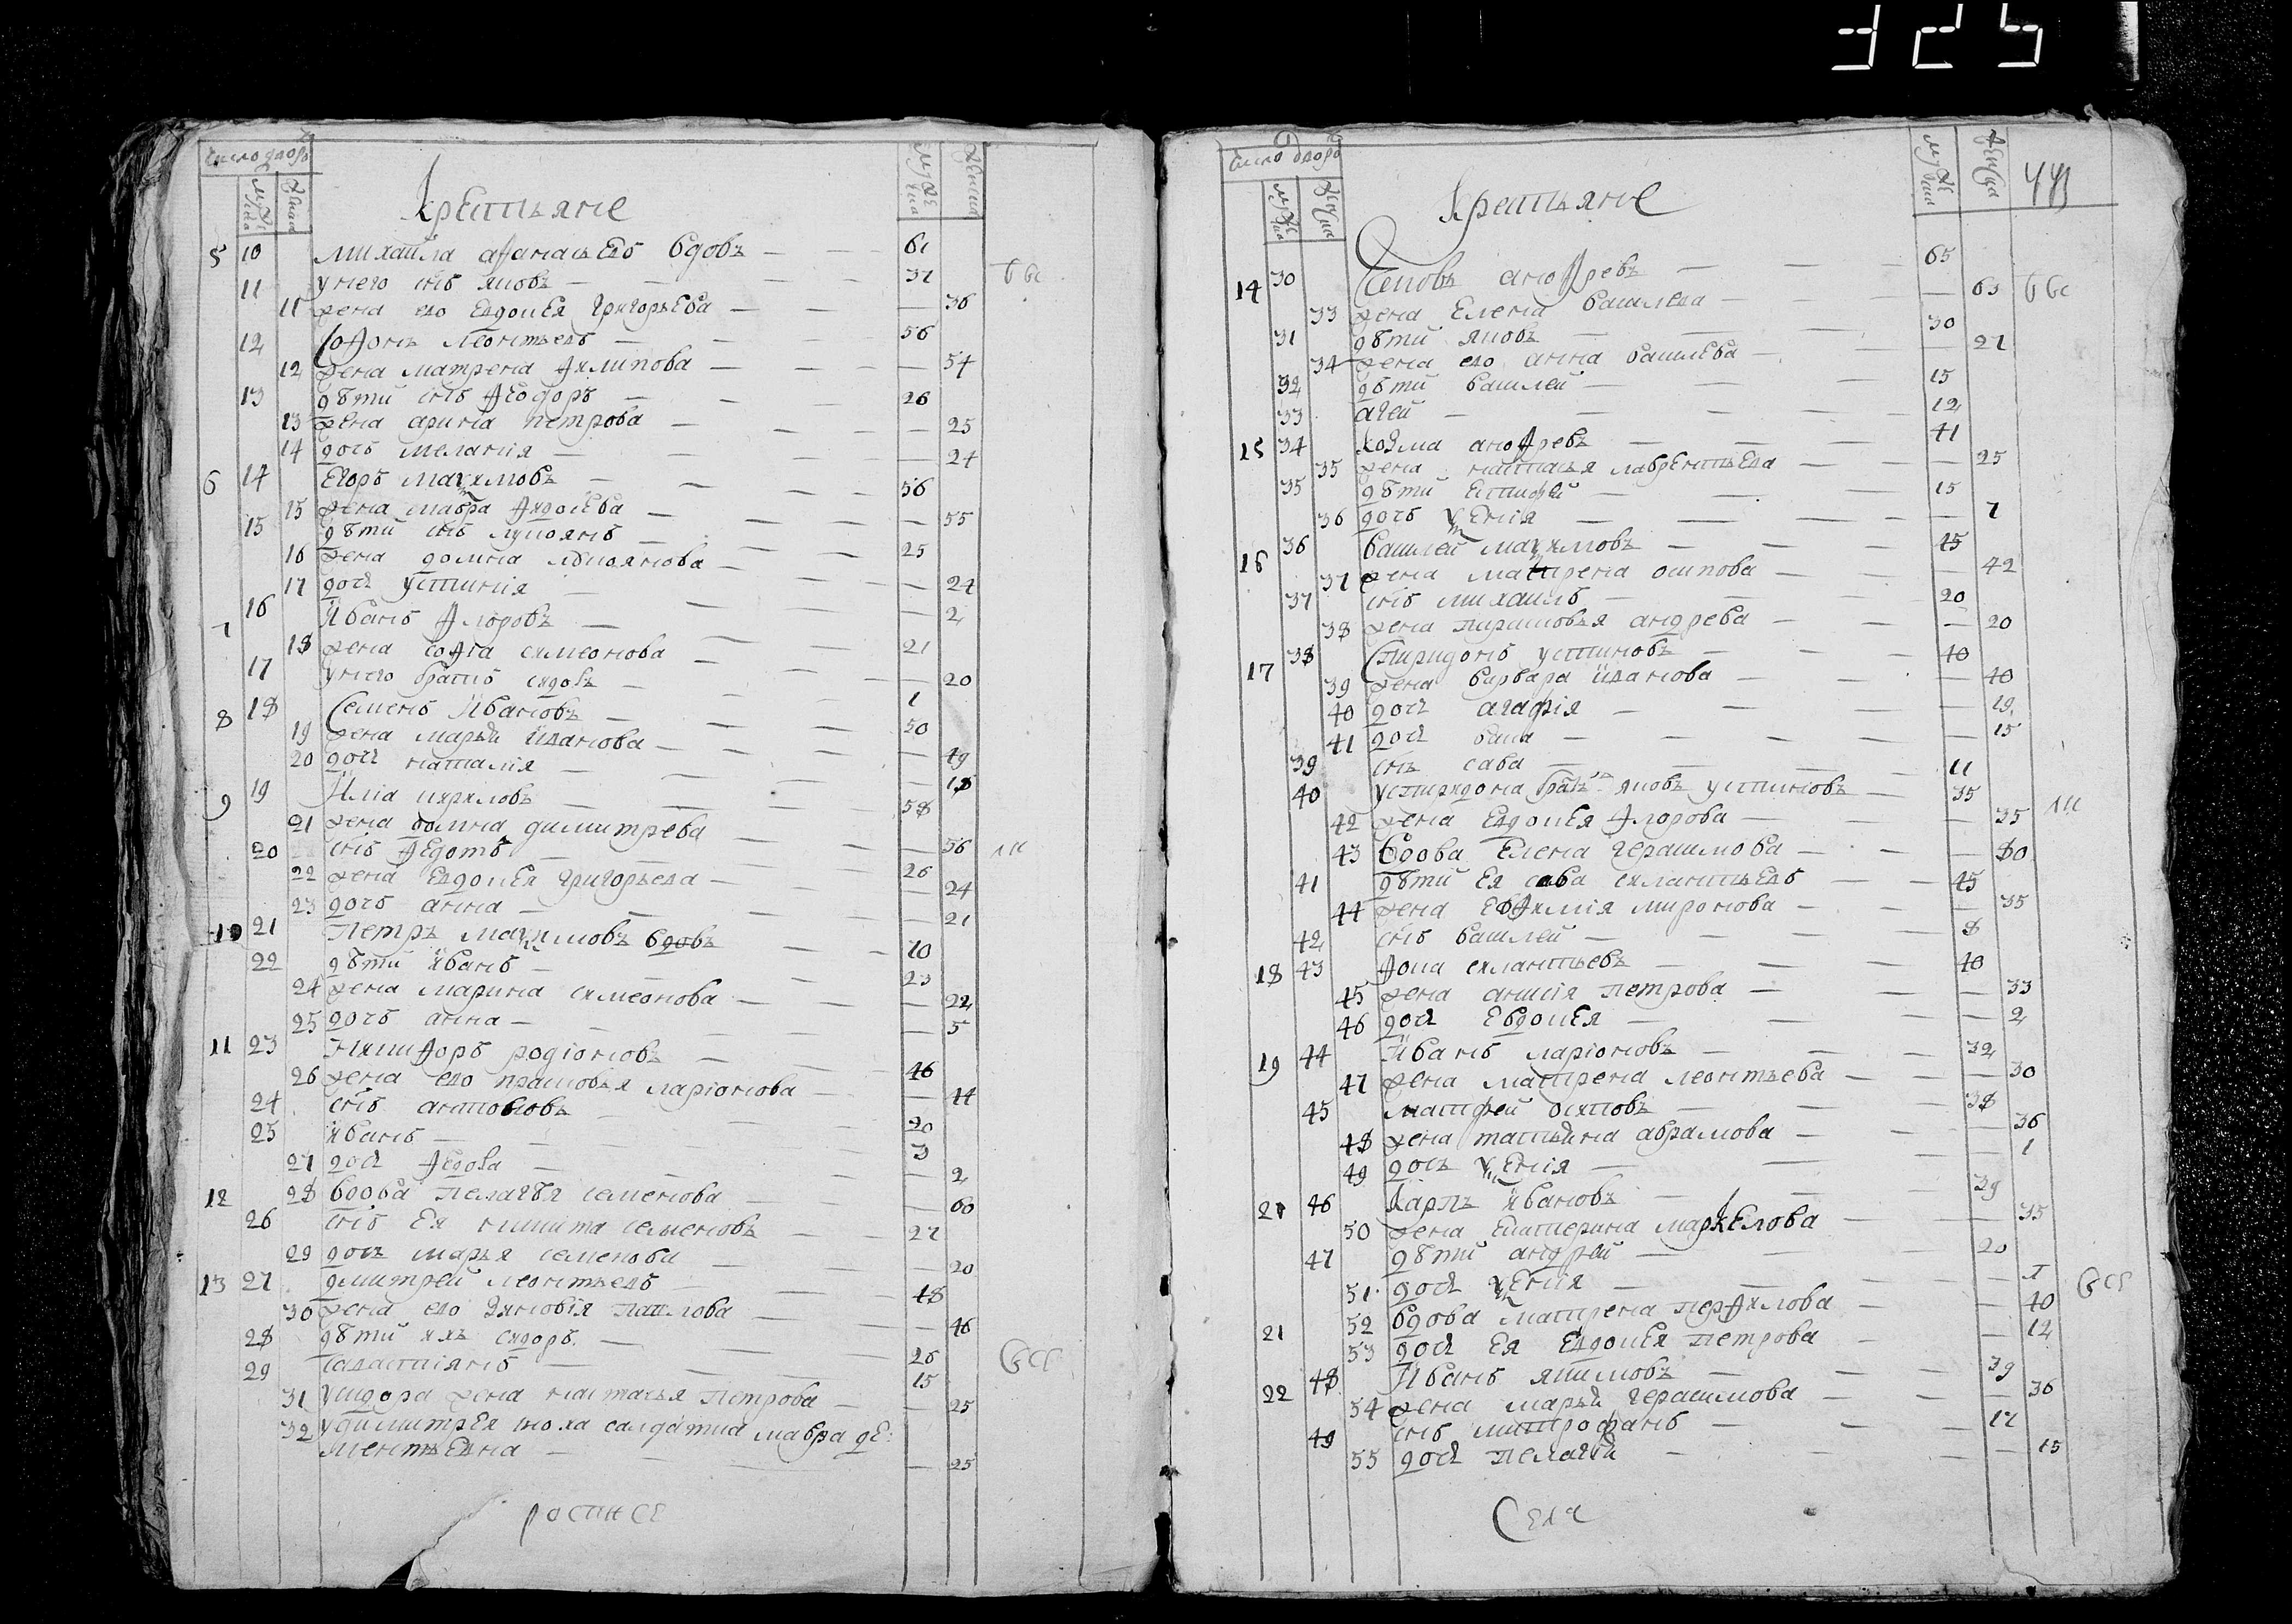 325
число дворо
мужеска
женска
Крестьяне
мужеска
женска
5 10 михаила афанасьевъ вдовъ — 61
11 у него снъ яковъ — 37
11 жена ево евдокея григорьева — 36
12 Софонъ леонтьевъ — 56
12 жена матрена филипова — 54
13 дѣти снъ федоръ — 26
13 жена арина петрова — 25
14 дочь меланiя — 24
6 14 Егоръ маѯимовъ — 56
15 жена мавра — 55
15 дѣти снъ лукоянъ — 25
16 жена домна — 24
17 дочь устинiя — 2
7 16 Иванъ флоровъ — 21
18 жена софiа симеонова — 20
17 у него братъ сидоръ — 1
8 18 Семенъ Ивановъ — 50
19 жена марья иванова — 49
20 дочь наталiя — 18
9 19 Илiа кириловъ — 58
21 жена домна димитрева — 56
20 снъ федотъ — 26
22 жена евдокея григорьева — 24
23 дочь анна — 21
10 21 Петръ маѯимовъ вдовъ — 70
22 дѣти иванъ — 23
24 жена марина симеонова — 22
25 дочь анна — 5
11 23 Никифоръ родiоновъ — 46
26 жена ево прасковья ларiонова — 44
24 снъ — 20
25 иванъ — 3
27 дочь — 2
12 28 вдова пелагея семенова — 60
26 снъ ея никита семеновъ — 27
29 дочь марья семенова — 20
13 27 дмитрей леонтьевъ — 48
30 жена ево зиновiя павлова — 46
28 дѣти ихъ сидоръ — 26
29 савастiянъ — 15
31 у сидора жена настасья петрова — 25
32 у димитрея сноха салдатка мавра де:
ментьевна — 25
всѣ
роспись
число дворо
мужеска
женска
Крестьяне
мужеска
женска
14 30 Яковъ андревъ — 65
33 жена елена василева — 63
31 дѣти яковъ — 30
34 жена ево анна василева — 27
32 дѣти василей — 15
33 агей — 12
15 34 козма андревъ — 41
35 жена настасья лаврентьева — 25
35 дѣти — 15
36 дочь ѯенiя — 7
16 36 василей маѯимовъ — 45
37 жена матрена осипова — 42
37 снъ михаилъ — 20
38 жена парасковья андрева — 20
17 38 Спиридонъ устиновъ — 40
39 жена варвара иванова — 40
40 дочь агафiя — 19
41 дочь — 15
39 снъ сава — 11
40 у спиридона братъ яковъ устиновъ — 35
42 жена евдокея флорова — 35
43 вдова елена герасимова — 80
41 дѣти ея сава силантьевъ — 45
44 жена ефимiя миронова — 35
42 снъ василей — 8
18 43 фока силантьевъ — 40
45 жена анисiя петрова — 33
46 дочь евдокея — 2
19 44 Иванъ ларiоновъ — 32
47 жена матрена леонтьева — 30
45 матфей осиповъ — 38
48 жена татьяна абрамова — 36
49 дочь ѯенiя — 1
20 46 Карпъ ивановъ — 39
50 жена екатерина маркелова — 35
47 дѣти андрей — 20
51 дочь ѯенiя
21 52 вдова матрена перфилова — 40
53 дочь ея евдокея петрова — 12
22 48 Иванъ якимовъ — 39
54 жена марья герасимова — 36
49 снъ митрофанъ — 17
55 дочь пелагея — 15
всѣ
Села